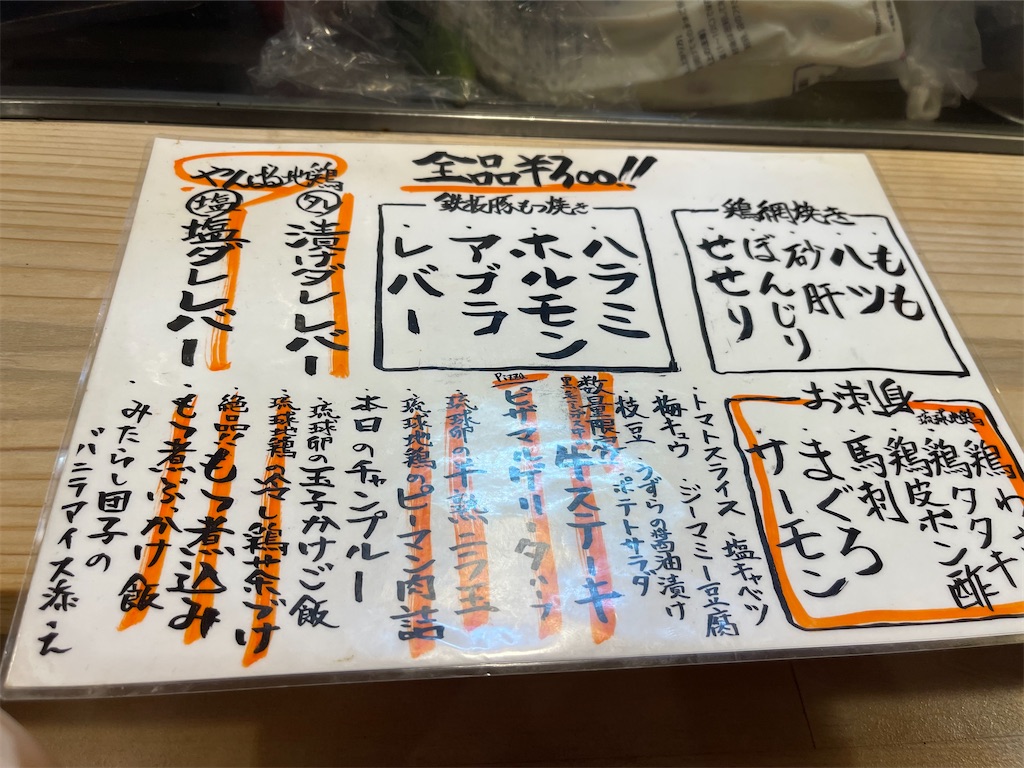 全品¥300!!
鶏網焼き
・もも
・ハツ
・砂肝
・ぼんじり
・せせり
鉄板豚もつ焼き
・ハラミ
・ホルモン
・アブラ
・レバー
やんばる地鶏
タレ 漬けダレレバー
塩 塩ダレレバー
お刺身
琉球地鶏
鶏わさ
鶏タタキ
鶏皮ポン酢
馬刺
まぐろ
サーモン
・トマトスライス ・塩キャベツ
・梅キュウ ・ジーマミー豆腐
・枝豆 ・うずらの醤油漬け
・ポテトサラダ
数量限定
牛ステーキ
Pizza
ピザマルゲリータ
・琉球卵の半熟ニラ玉
・琉球地鶏のピーマン肉詰
・本日のチャンプルー
・琉球卵の玉子かけご飯
・琉球鶏の冷し鶏茶づけ
・絶品もつ煮込み
・もつ煮ぶっかけ飯
・みたらし団子の
バニラアイス添え